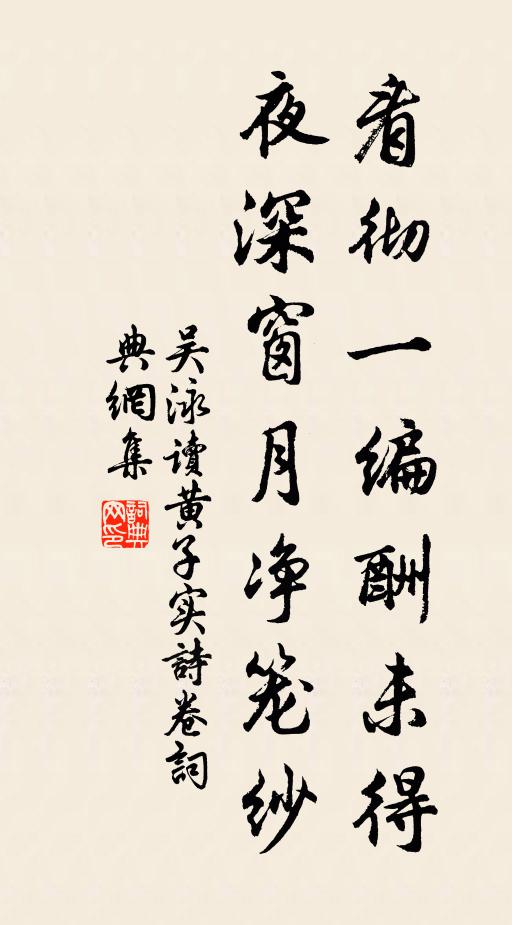 看彻一编酬未得
夜深窗月净笼纱
吴泳讀黄子实詩卷詞
典網集
詞典网印